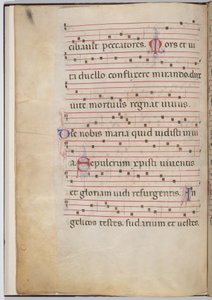 ciliauit peccatores. Mors et ui
ta duello conflixere mirando. dux
uite mortuus regnat uiuus.
Dic nobis maria quid uidisti in ui
a Sepulcrum xpisti uiuentis
et gloriam uidi resurgentis. An
gelicos testes. sudarium et uestes.